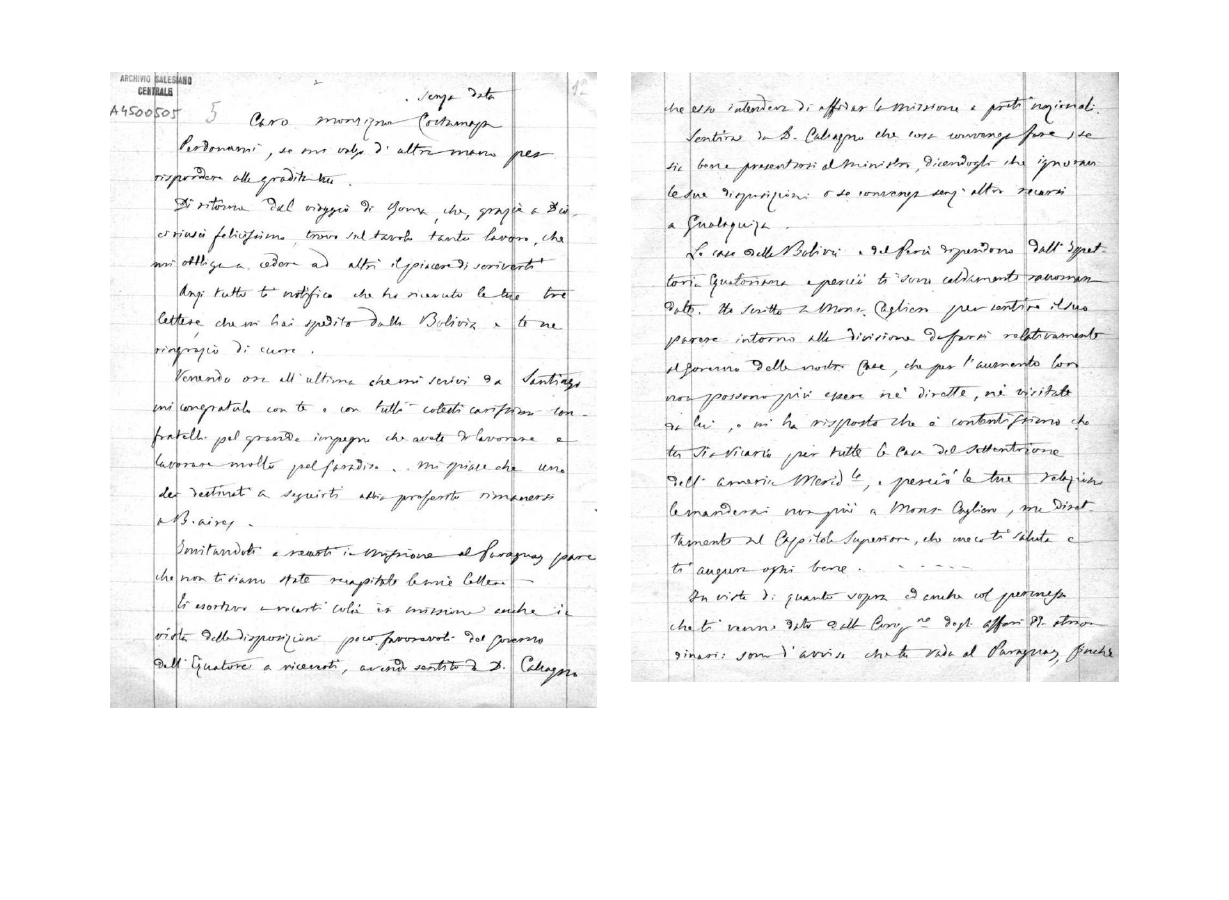 ARCHIVIO SALESIANO
CENTRALE
A4500505
5
senza data
Caro monsignor Costamagna
Perdonami, se mi valgo d'altra mano per
rispondere alle gradite tue.
Di ritorno dal viaggio di Roma, che, grazie a Dio
ci riuscì felicissimo, trovo sul tavolo tanto lavoro, che
mi obbliga a cedere ad altri il piacere di scriverti
Anzi tutto ti notifico che ho ricevuto le tue tre
lettere che mi hai spedito dalla Bolivia e te ne
ringrazio di cuore.
Venendo ora all'ultima che mi scrivi da Santiago
mi congratulo con te e con tutti cotesti carissimi con-
fratelli pel grande impegno che avete di lavorare e
lavorare molto pel paradiso. Mi spiace che uno
dei destinati a seguirti abbia preferito rimanersi
a B. aires.
Invitandoti a recarti in missione al Paraguay pare
che non ti siano state recapitate le mie lettere
Ti esortavo a recarti colà in missione anche in
vista delle disposizioni poco favorevoli del governo
dell'Equatore a riceverti, avendo sentito da D. Calcagno
che esso intendeva di affidar la missione a preti nazionali.
Sentirai da D. Calcagno che cosa convenga fare, se
sia bene presentarsi al Ministro, dicendogli che ignoravi
le sue disposizioni o se convenga senz'altro recarsi
a Gualaquiza.
Le case della Bolivia e del Perù dipendono dall'Ispet-
toria Equatoriana e perciò ti sono caldamente raccoman
date. Ho scritto a Mons. Cagliero per sentire il suo
parere intorno alla divisione da farsi relativamente
al governo delle nostre Case, che per l'aumento loro
non possono più essere nè dirette, nè visitate
da lui, e mi ha risposto che è contentissimo che
tu sia Vicario per tutte le Case del Settentrione
dell'america Merid.le, e perciò le tue relazioni
le manderai non più a Mons. Cagliero, ma diret-
tamente al Capitolo Superiore, che meco ti saluta e
ti augura ogni bene. - - - - -
In vista di quanto sopra ed anche col permesso
che ti venne dato dalla Cong.ne degli affari St. straor
dinari: sono d'avviso che tu vada al Paraguay, finchè